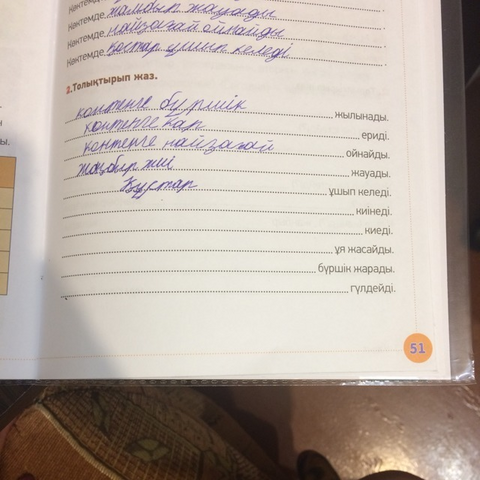 Көктемде жамбыр жауады.
Көктемде найзағай ойнайды.
Көктемде қостар ұшып келеді.
2.Толықтырып жаз.
көктенге бүршік жылынады.
көктенге қар ериді.
көктенге найзағай ойнайды.
жаңбыр жиі жауады.
Құстар ұшып келеді.
киінеді.
киеді.
ұя жасайды.
бүршік жарады.
гүлдейді.
51